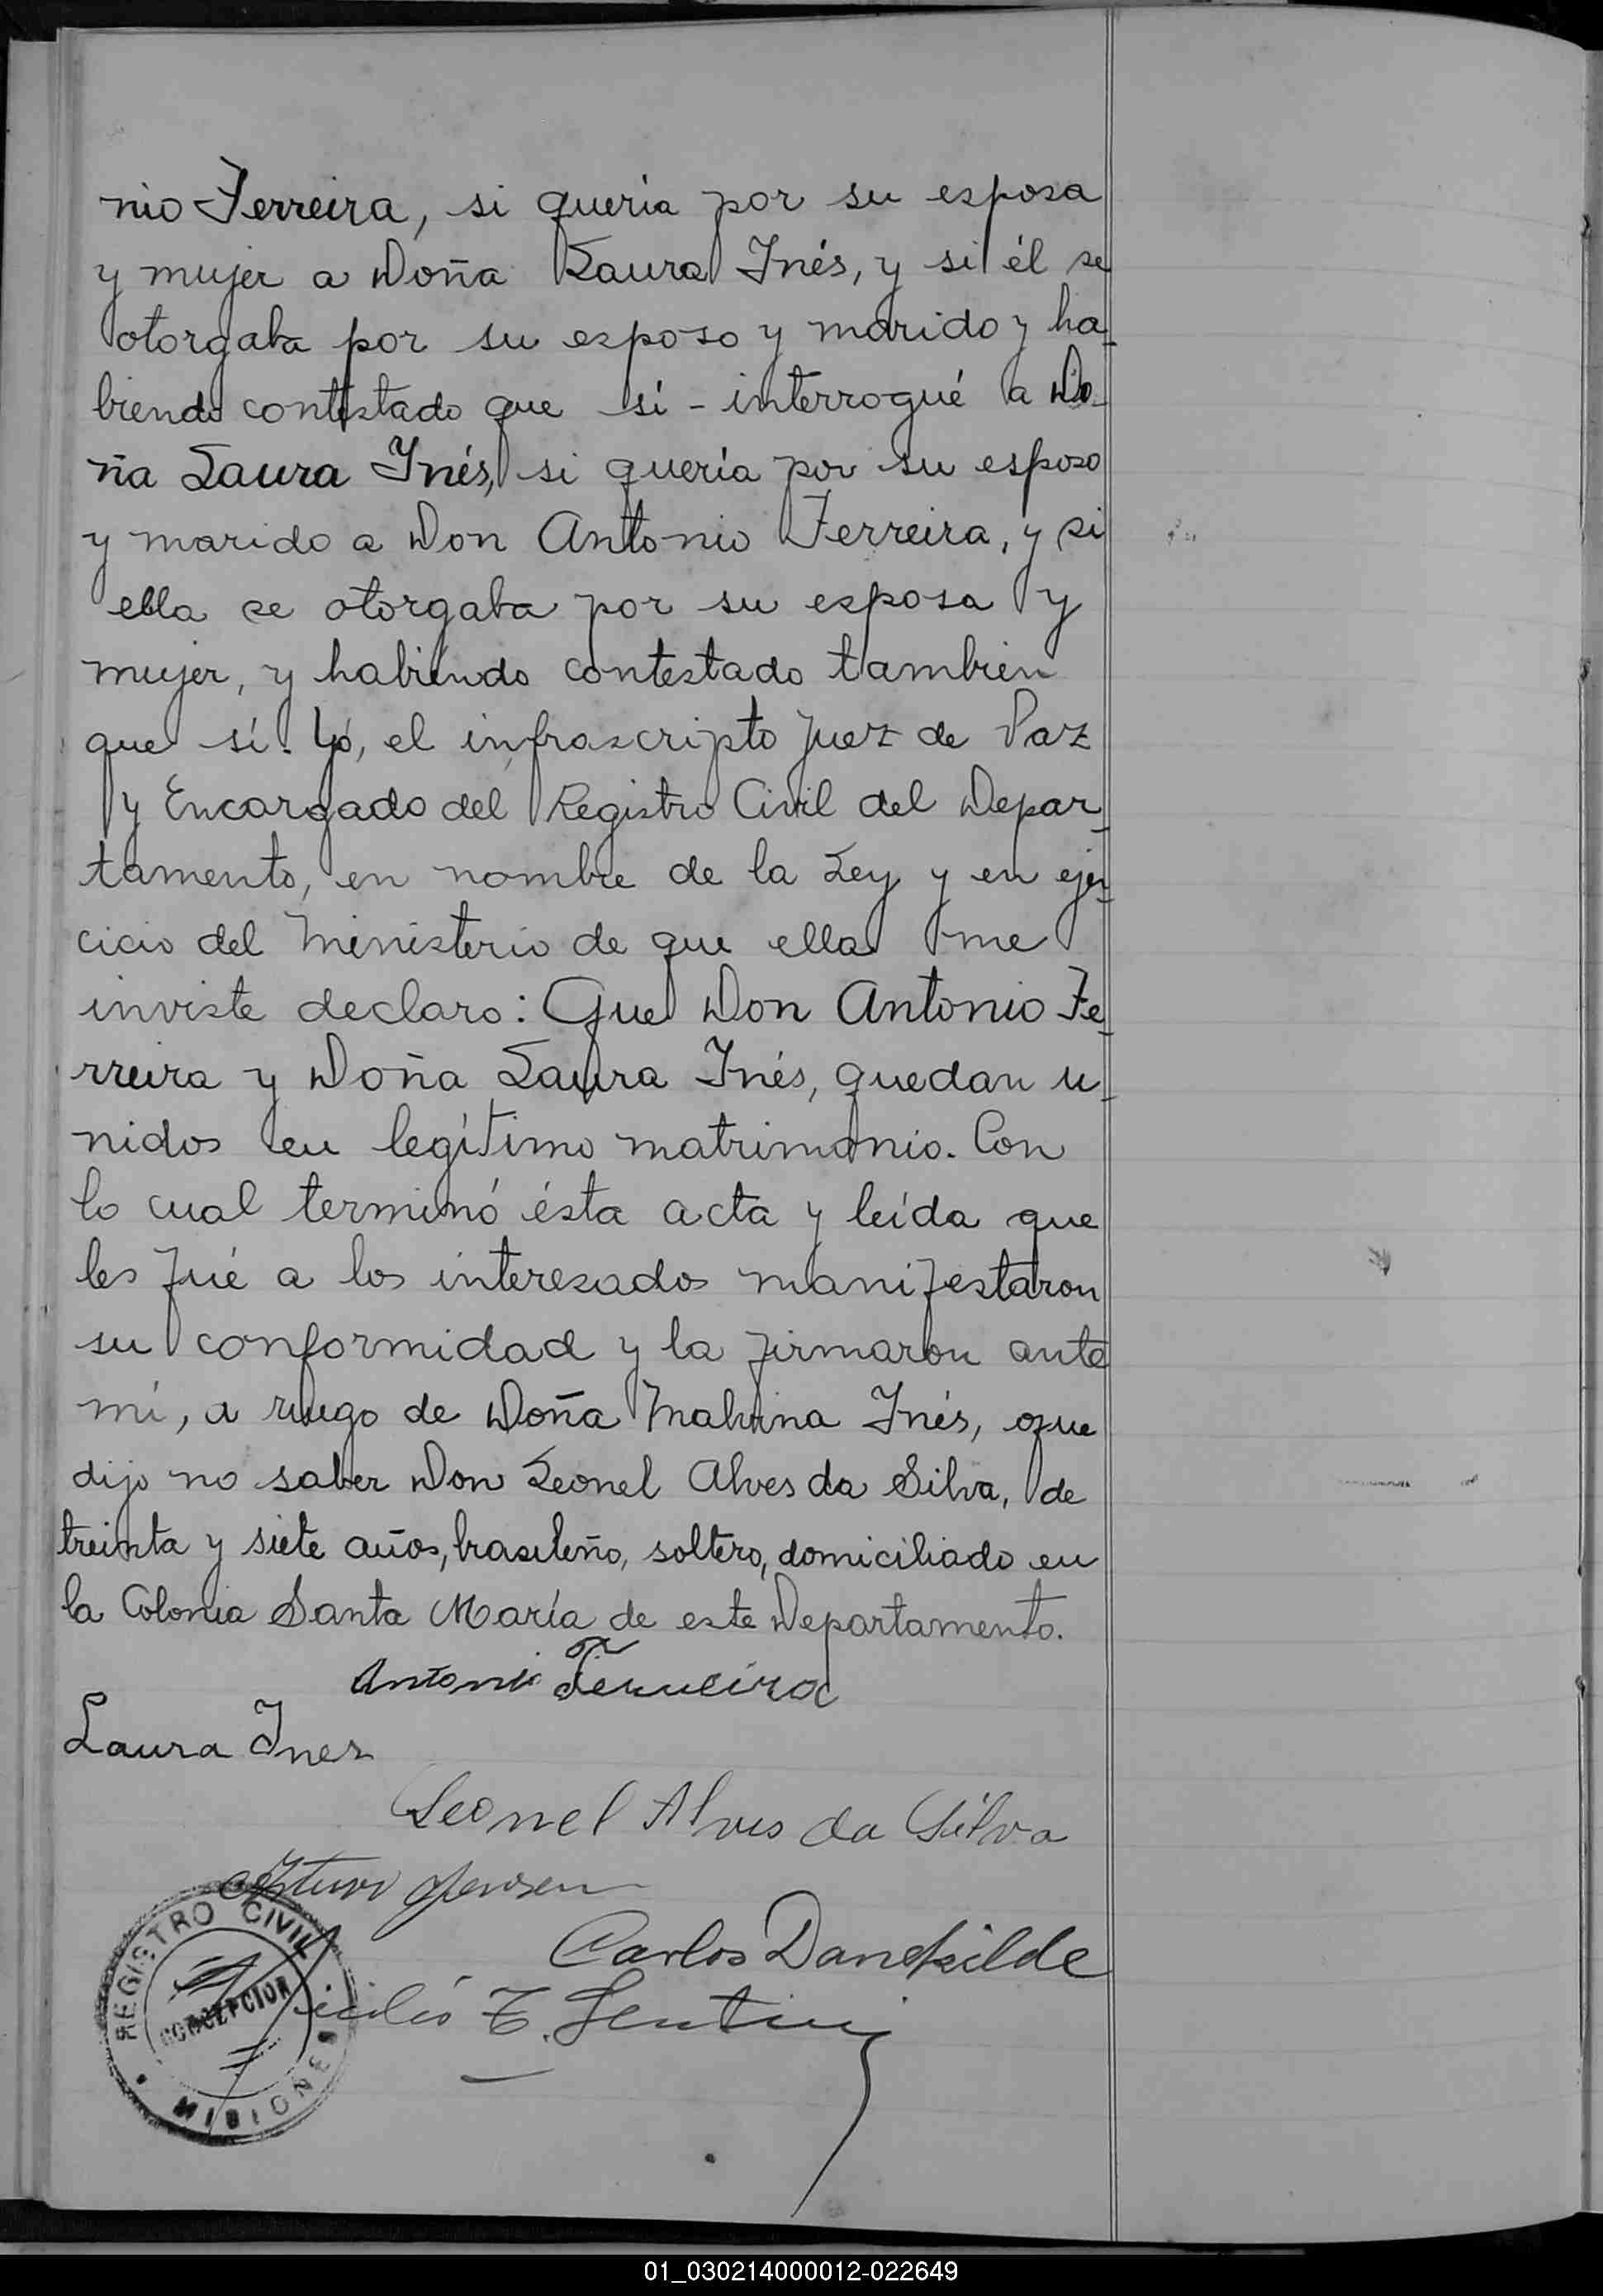 nio Ferreira, si quería por su esposa
y mujer a Doña Laura Inés, y si él se
otorgaba por su esposo y marido y ha-
biendo contestado que sí - interrogué a Do-
ña Laura Inés, si quería por su esposo
y marido a Don Antonio Ferreira, y si
ella se otorgaba por su esposa y
mujer, y habiendo contestado tambien
que sí. Yó, el infrascripto Juez de Paz
y Encargado del Registro Civil del Depar-
tamento, en nombre de la Ley y en ejer-
cicio del Ministerio de que ella me
inviste declaro: Que Don Antonio Fe-
rreira y Doña Laura Inés, quedan u-
nidos en legítimo matrimonio. Con
lo cual terminó ésta acta y leída que
les fué a los interesados manifestaron
su conformidad y la firmaron ante
mí, a ruego de Doña Malvina Inés, que
dijo no saber Don Leonel Alves da Silva, de
treinta y siete años, brasileño, soltero, domiciliado en
la Colonia Santa María de este Departamento.
Antonio Ferreira
Laura Ines
Leonel Alves da Silva
Carlos Danekilde
REGISTRO CIVIL
CONCEPCION
MISIONES
01_030214000012-022649